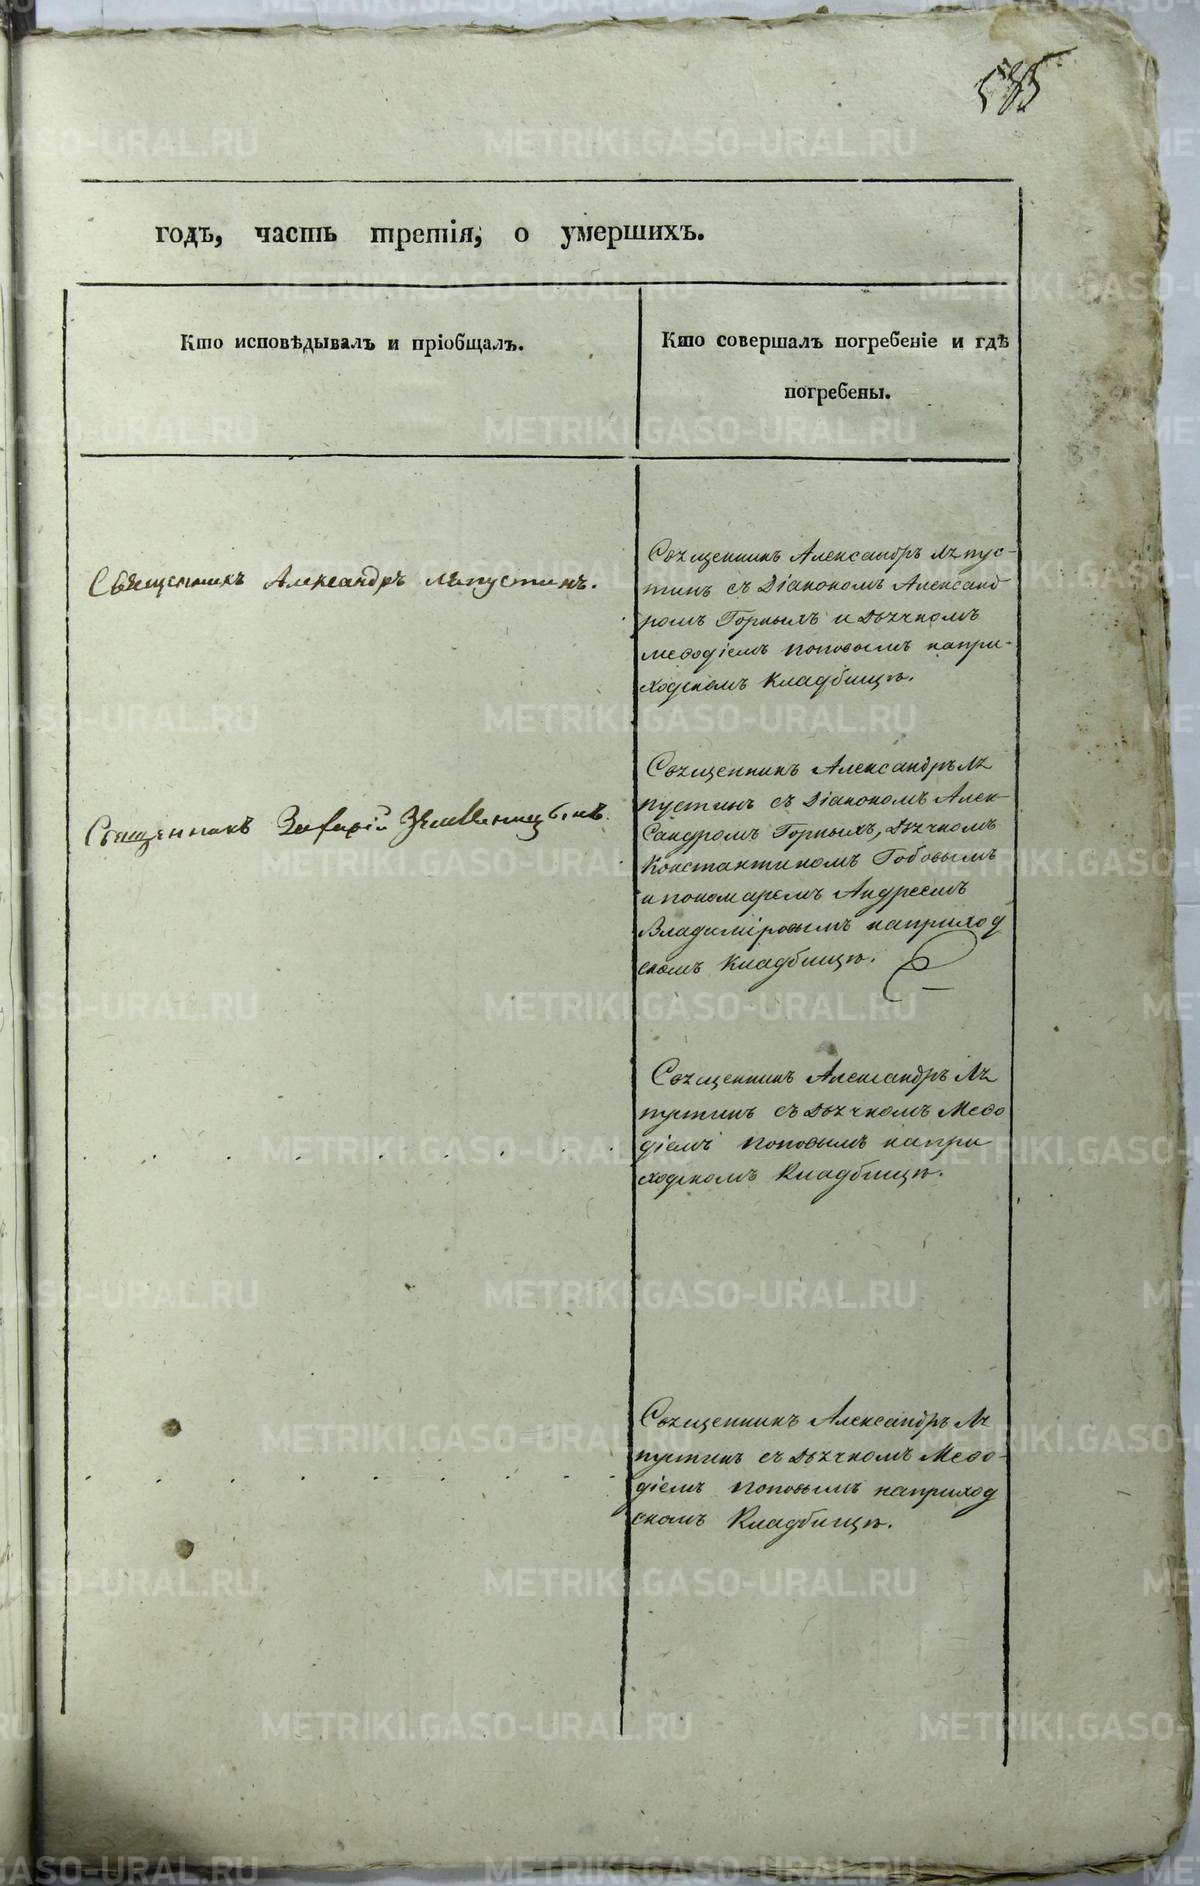 585
годъ, часть третія, о умершихъ.
Кто исповѣдывалъ и пріобщалъ.
Кто совершалъ погребеніе и гдѣ
погребены.
Священникъ Александръ Ляпустинъ.
Священникъ Александръ Ляпус-
тинъ съ Діакономъ Александ
ромъ Горныхъ и Дьячкомъ
Меѳодіемъ Поповымъ напри-
ходскомъ Кладбищѣ.
Священникъ
Священникъ Александръ Ля
пустинъ съ Діакономъ Алек
сандромъ Горныхъ, Дьячкомъ
Константиномъ Гобовымъ
и пономаремъ Андреемъ
Владиміровымъ наприход
скомъ Кладбищѣ.
Священникъ Александръ Ля
пустинъ съ Дьячкомъ Меѳо
діемъ Поповымъ напри
ходскомъ Кладбищѣ.
Священникъ Александръ Ля
пустинъ съ Дьячкомъ Меѳо-
діемъ Поповымъ наприход
скомъ Кладбищѣ.
METRIKI.GASO-URAL.RU